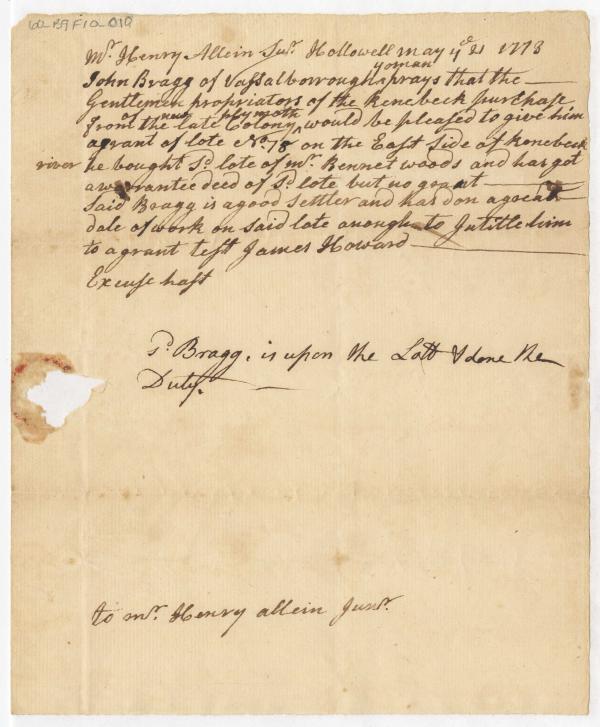 60 B9 F10 010
Mr. Henry Allein Junr. Hollowell may ye 21 1773
yoman
John Bragg of Vassalborrough prays that the
Gentlemen propriators of the Kenebeck purchase
of new plymoth
from the late Colony ^ would be pleased to give him
a grant of lote No. 78 on the East Side of Kenebeck
river he bought Sd. lote of mr. Bennet woods and has got
a warrantee deed of Sd. lote but no grant
Said Bragg is a good Settler and has don a great
dale of work on said lote anough to Intitle him
to a grant test James Howard
Excuse hast
Sd. Bragg, is upon the Lott & done the
Duty.
to mr. Henry allein Junr.